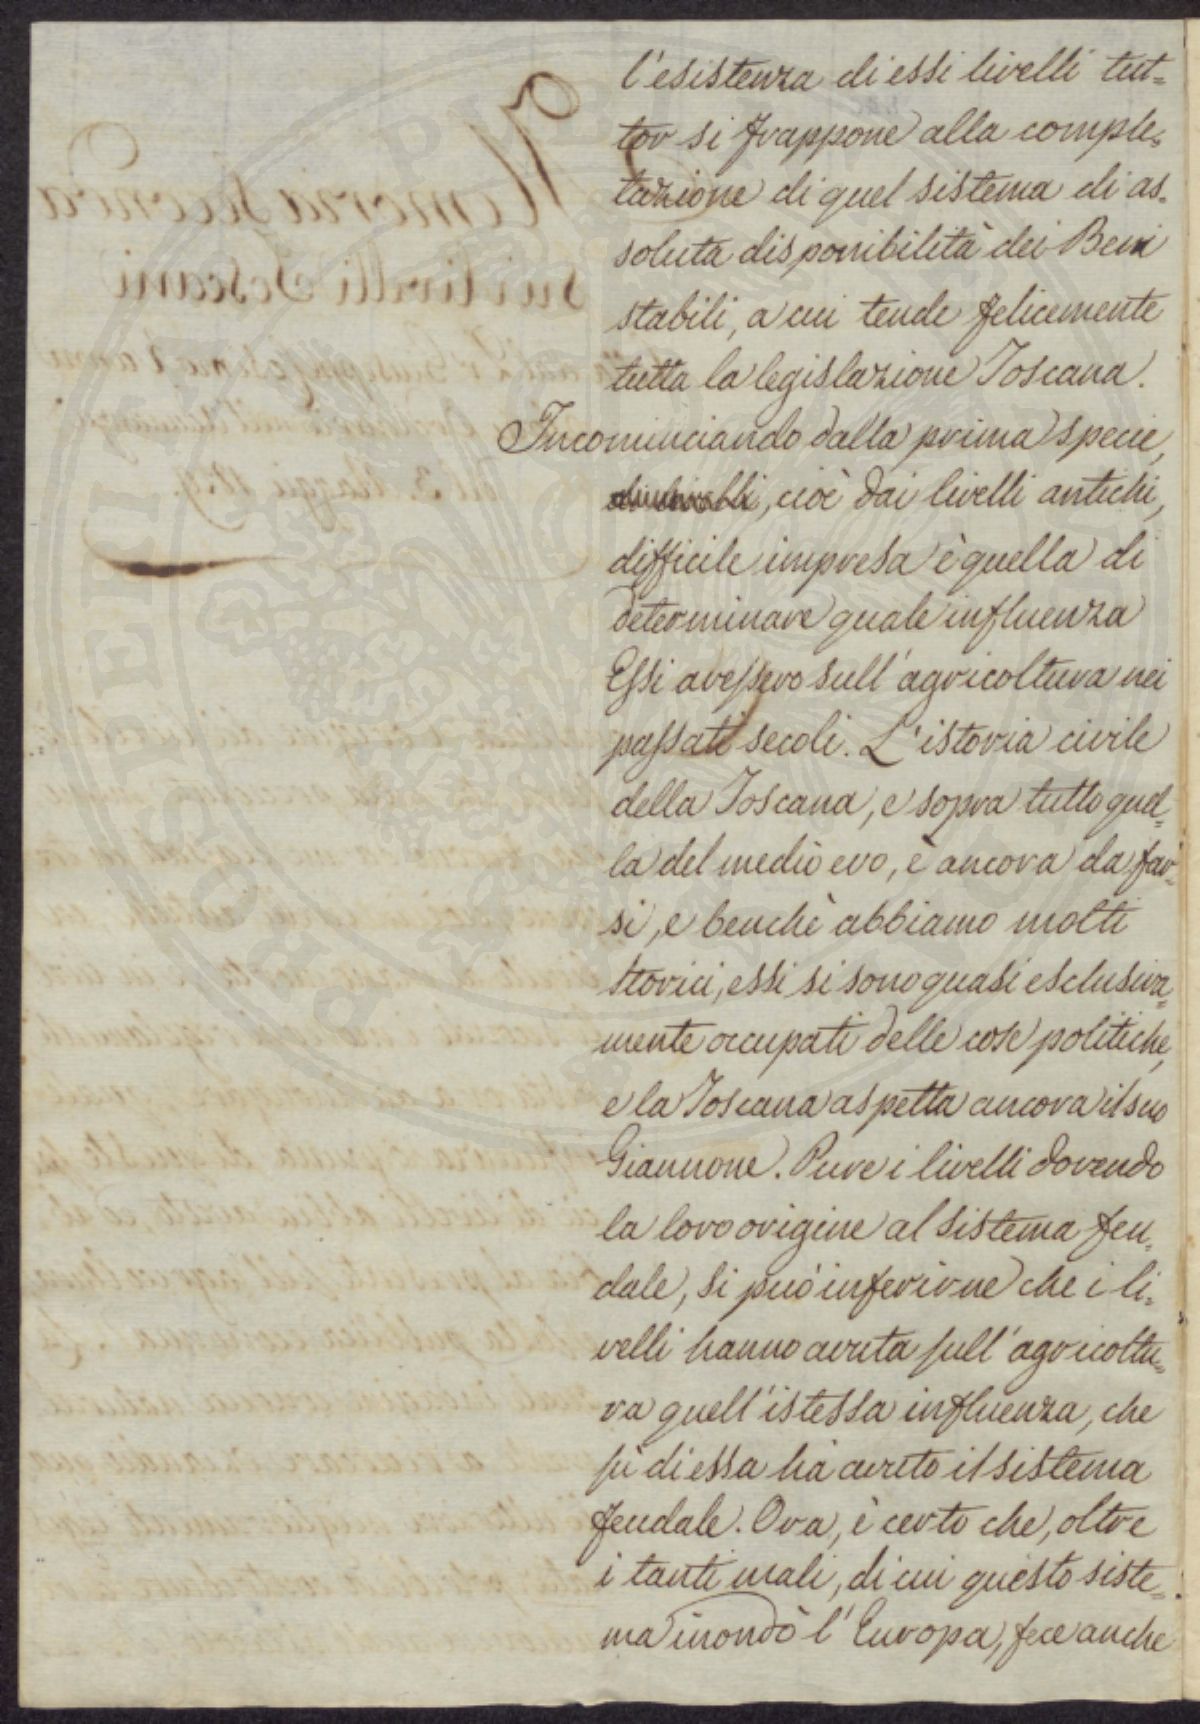 l'esistenza di essi livelli tut=
tor si frappone alla comple=
tazione di quel sistema di as=
soluta disponibilità dei Beni
stabili, a cui tende felicemente
tutta la legislazione Toscana.
Incominciando dalla prima specie,
cioè dai livelli antichi,
difficile impresa è quella di
determinare quale influenza
Essi avessero sull'agricoltura nei
passati secoli. L'istoria civile
della Toscana, e sopra tutto quel=
la del medio evo, è ancora da far=
si, e benchè abbiamo molti
storici, essi si sono quasi esclusiva=
mente occupati delle cose politiche,
e la Toscana aspetta ancora il suo
Giannone. Pure i livelli dovendo
la loro origine al sistema feu=
dale, si può inferirne che i li=
velli hanno avuta sull'agricoltu=
ra quell'istessa influenza, che
su di essa ha avuto il sistema
feudale. Ora, è certo che, oltre
i tanti mali, di cui questo siste=
ma inondò l'Europa, fece anche